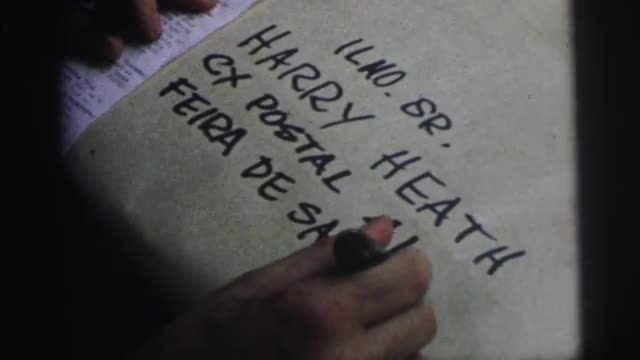 ILMO. SR.
HARRY HEATH
CX POSTAL
FEIRA DE SA